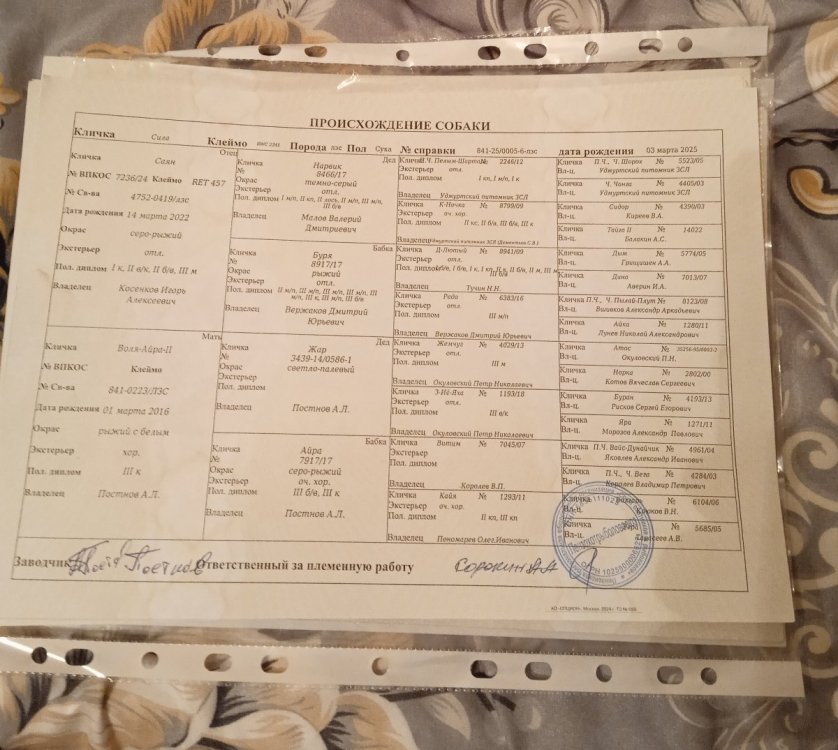 ПРОИСХОЖДЕНИЕ СОБАКИ
Кличка Сила Клеймо Порода лзс Пол Сука № справки 841-25/0005-6-лзс дата рождения 03 марта 2025
Отец
Кличка Саян
№ ВПКОС 7236/24 Клеймо RET 457
№ Св-ва 4752-0419/лзс
Дата рождения 14 марта 2022
Окрас серо-рыжий
Экстерьер отл.
Пол. диплом I к, II в/к, II б/в, III м
Владелец Косенков Игорь
Алексеевич
Мать
Кличка Воля-Айра-II
№ ВПКОС Клеймо
№ Св-ва 841-0223/ЛЗС
Дата рождения 01 марта 2016
Окрас рыжий с белым
Экстерьер хор.
Пол. диплом III к
Владелец Постнов А.Л.
Дед
Кличка Нарвик
№ 8466/17
Окрас темно-серый
Экстерьер отл.
Пол. диплом I м/п, II кп, II лось, II м/п, III м/п,
III б/в
Владелец Малов Валерий
Дмитриевич
Бабка
Кличка Буря
№ 8917/17
Окрас рыжий
Экстерьер отл.
Пол. диплом II м/п, III м/п, III м/п, III м/п, III
м/п, III к, III м/п, III б/в
Владелец Вержаков Дмитрий
Юрьевич
Дед
Кличка Жар
№ 3439-14/0586-1
Окрас светло-палевый
Экстерьер
Пол. диплом
Владелец Постнов А.Л.
Бабка
Кличка Айра
№ 7917/17
Окрас серо-рыжий
Экстерьер оч. хор.
Пол. диплом III б/в, III к
Владелец Постнов А.Л.
Кличка П.Ч. Пелым-Шорта № 2246/12
Экстерьер отл.
Пол. диплом I кп, I м/п, I к
Владелец Удмуртский питомник ЗСЛ
Кличка К-Ночка № 8799/09
Экстерьер оч. хор.
Пол. диплом II кс, II б/в, III б/к
Владелец Удмуртский питомник ЗСЛ (Дементьев С.В.)
Кличка Д-Лютый № 8941/09
Экстерьер отл.
Пол. диплом
III б/в
Владелец Тучин Н.Н.
Кличка Реда № 6383/16
Экстерьер отл.
Пол. диплом III м/п
Владелец Вержаков Дмитрий Юрьевич
Кличка Жемчуг № 4029/13
Экстерьер отл.
Пол. диплом III м
Владелец Окуловский Петр Николаевич
Кличка З-Нё-Яха № 1193/18
Экстерьер отл.
Пол. диплом III в/к
Владелец Окуловский Петр Николаевич
Кличка Витим № 7045/07
Экстерьер
Пол. диплом
Владелец Королев В.П.
Кличка Кейя № 1293/11
Экстерьер оч. хор.
Пол. диплом II кп, III кп
Владелец Пономарев Олег Иванович
Кличка П.Ч., Ч. Шорох № 5523/05
Вл-ц. Удмуртский питомник ЗСЛ
Кличка Ч. Чанга № 4405/03
Вл-ц. Удмуртский питомник ЗСЛ
Кличка Сидор № 4390/03
Вл-ц. Киреев В.А.
Кличка Тайга II № 14022
Вл-ц. Балакин А.С.
Кличка Дым № 5774/05
Вл-ц. Грицишен А.А.
Кличка Дана № 7013/07
Вл-ц. Аверин И.А.
Кличка П.Ч., Ч. Пылай-Плут № 8123/08
Вл-ц. Вшивков Александр Аркадьевич
Кличка Айха № 1280/11
Вл-ц. Лунев Николай Александрович
Кличка Атас №
Вл-ц. Окуловский П.Н.
Кличка Норка № 2802/00
Вл-ц. Котов Вячеслав Сергеевич
Кличка Буран № 4193/13
Вл-ц. Рисков Сергей Егорович
Кличка Яра № 1271/11
Вл-ц. Морозов Александр Павлович
Кличка П.Ч. Вайс-Дунайчик № 4961/04
Вл-ц. Яковлев Александр Иванович
Кличка П.Ч., Ч. Вега № 4284/03
Вл-ц. Королев Владимир Петрович
Кличка № 6104/06
Вл-ц. Крюков В.Н.
Кличка № 5685/05
Вл-ц. А.В.
Заводчик Постнов Ответственный за племенную работу Сорокин А.А
АО «ОПЦИОН», Москва, 2024 г.